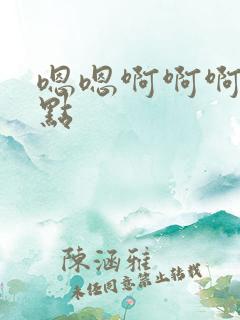 嗯嗯啊啊啊
點
陳涵雅
未经同意禁止转载